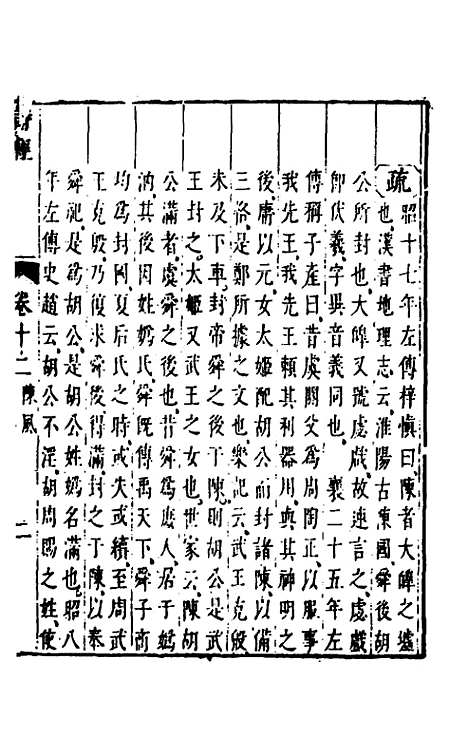 疏昭十七年左傳梓慎曰陳者大皥之墟
也漢書地理志云淮陽古陳國舜後胡
公所封也大皥又號虙戲故連言之虙戲
卽伏羲字異音義同也 襄二十五年左
傳稱子產曰昔虞閼父爲周陶正以服事
我先王我先王賴其利器用與其神明之
後庸以元女太姬配胡公而封諸陳以備
三恪是鄭所據之文也樂記云武王克殷
未及下車封帝舜之後於陳則胡公是武
王封之太姬又武王之女也世家云陳胡
公滿者虞舜之後也昔舜爲庶人居于嬀
汭其後因姓嬀氏舜旣傳禹天下舜子商
均爲封國夏后氏之時或失或續至周武
王克殷乃復求舜後得滿封之于陳以奉
舜祀是爲胡公是胡公姓嬀名滿也昭八
年左傳史趙云胡公不淫胡周賜之姓使
詩經
卷十二 陳風
二